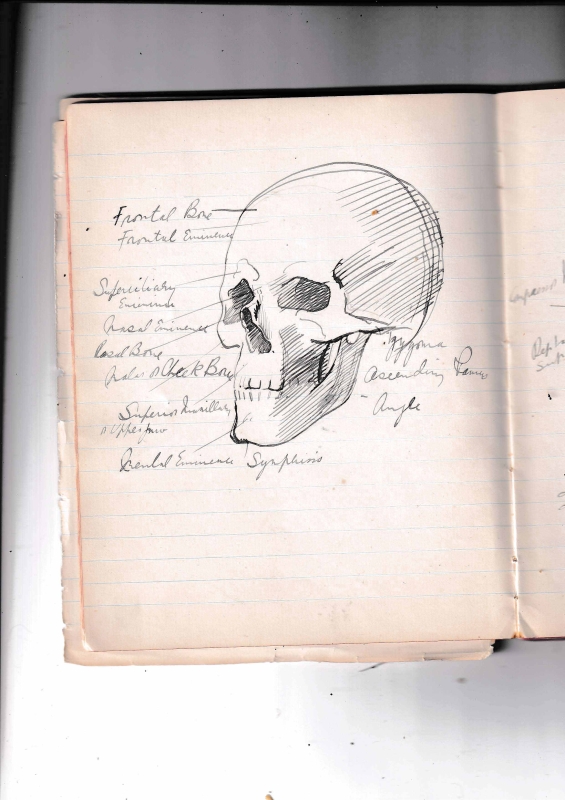 Frontal Bone
Frontal Eminence
Superciliary
Eminence
Nasal Eminence
Nasal Bone
Malar or Cheek Bone
Superior Maxillary
or Upper jaw
Mental Eminence Symphisis
Zygoma
Ascending Ramus
Angle